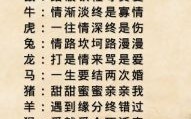 牛：情渐淡终是寡情
虎：一往情深终是伤
兔：情路坎坷路漫漫
龙：打是情来骂是爱
马：一生要结两次婚
猪：甜甜蜜蜜亲亲我
羊：遇到缘分终错过